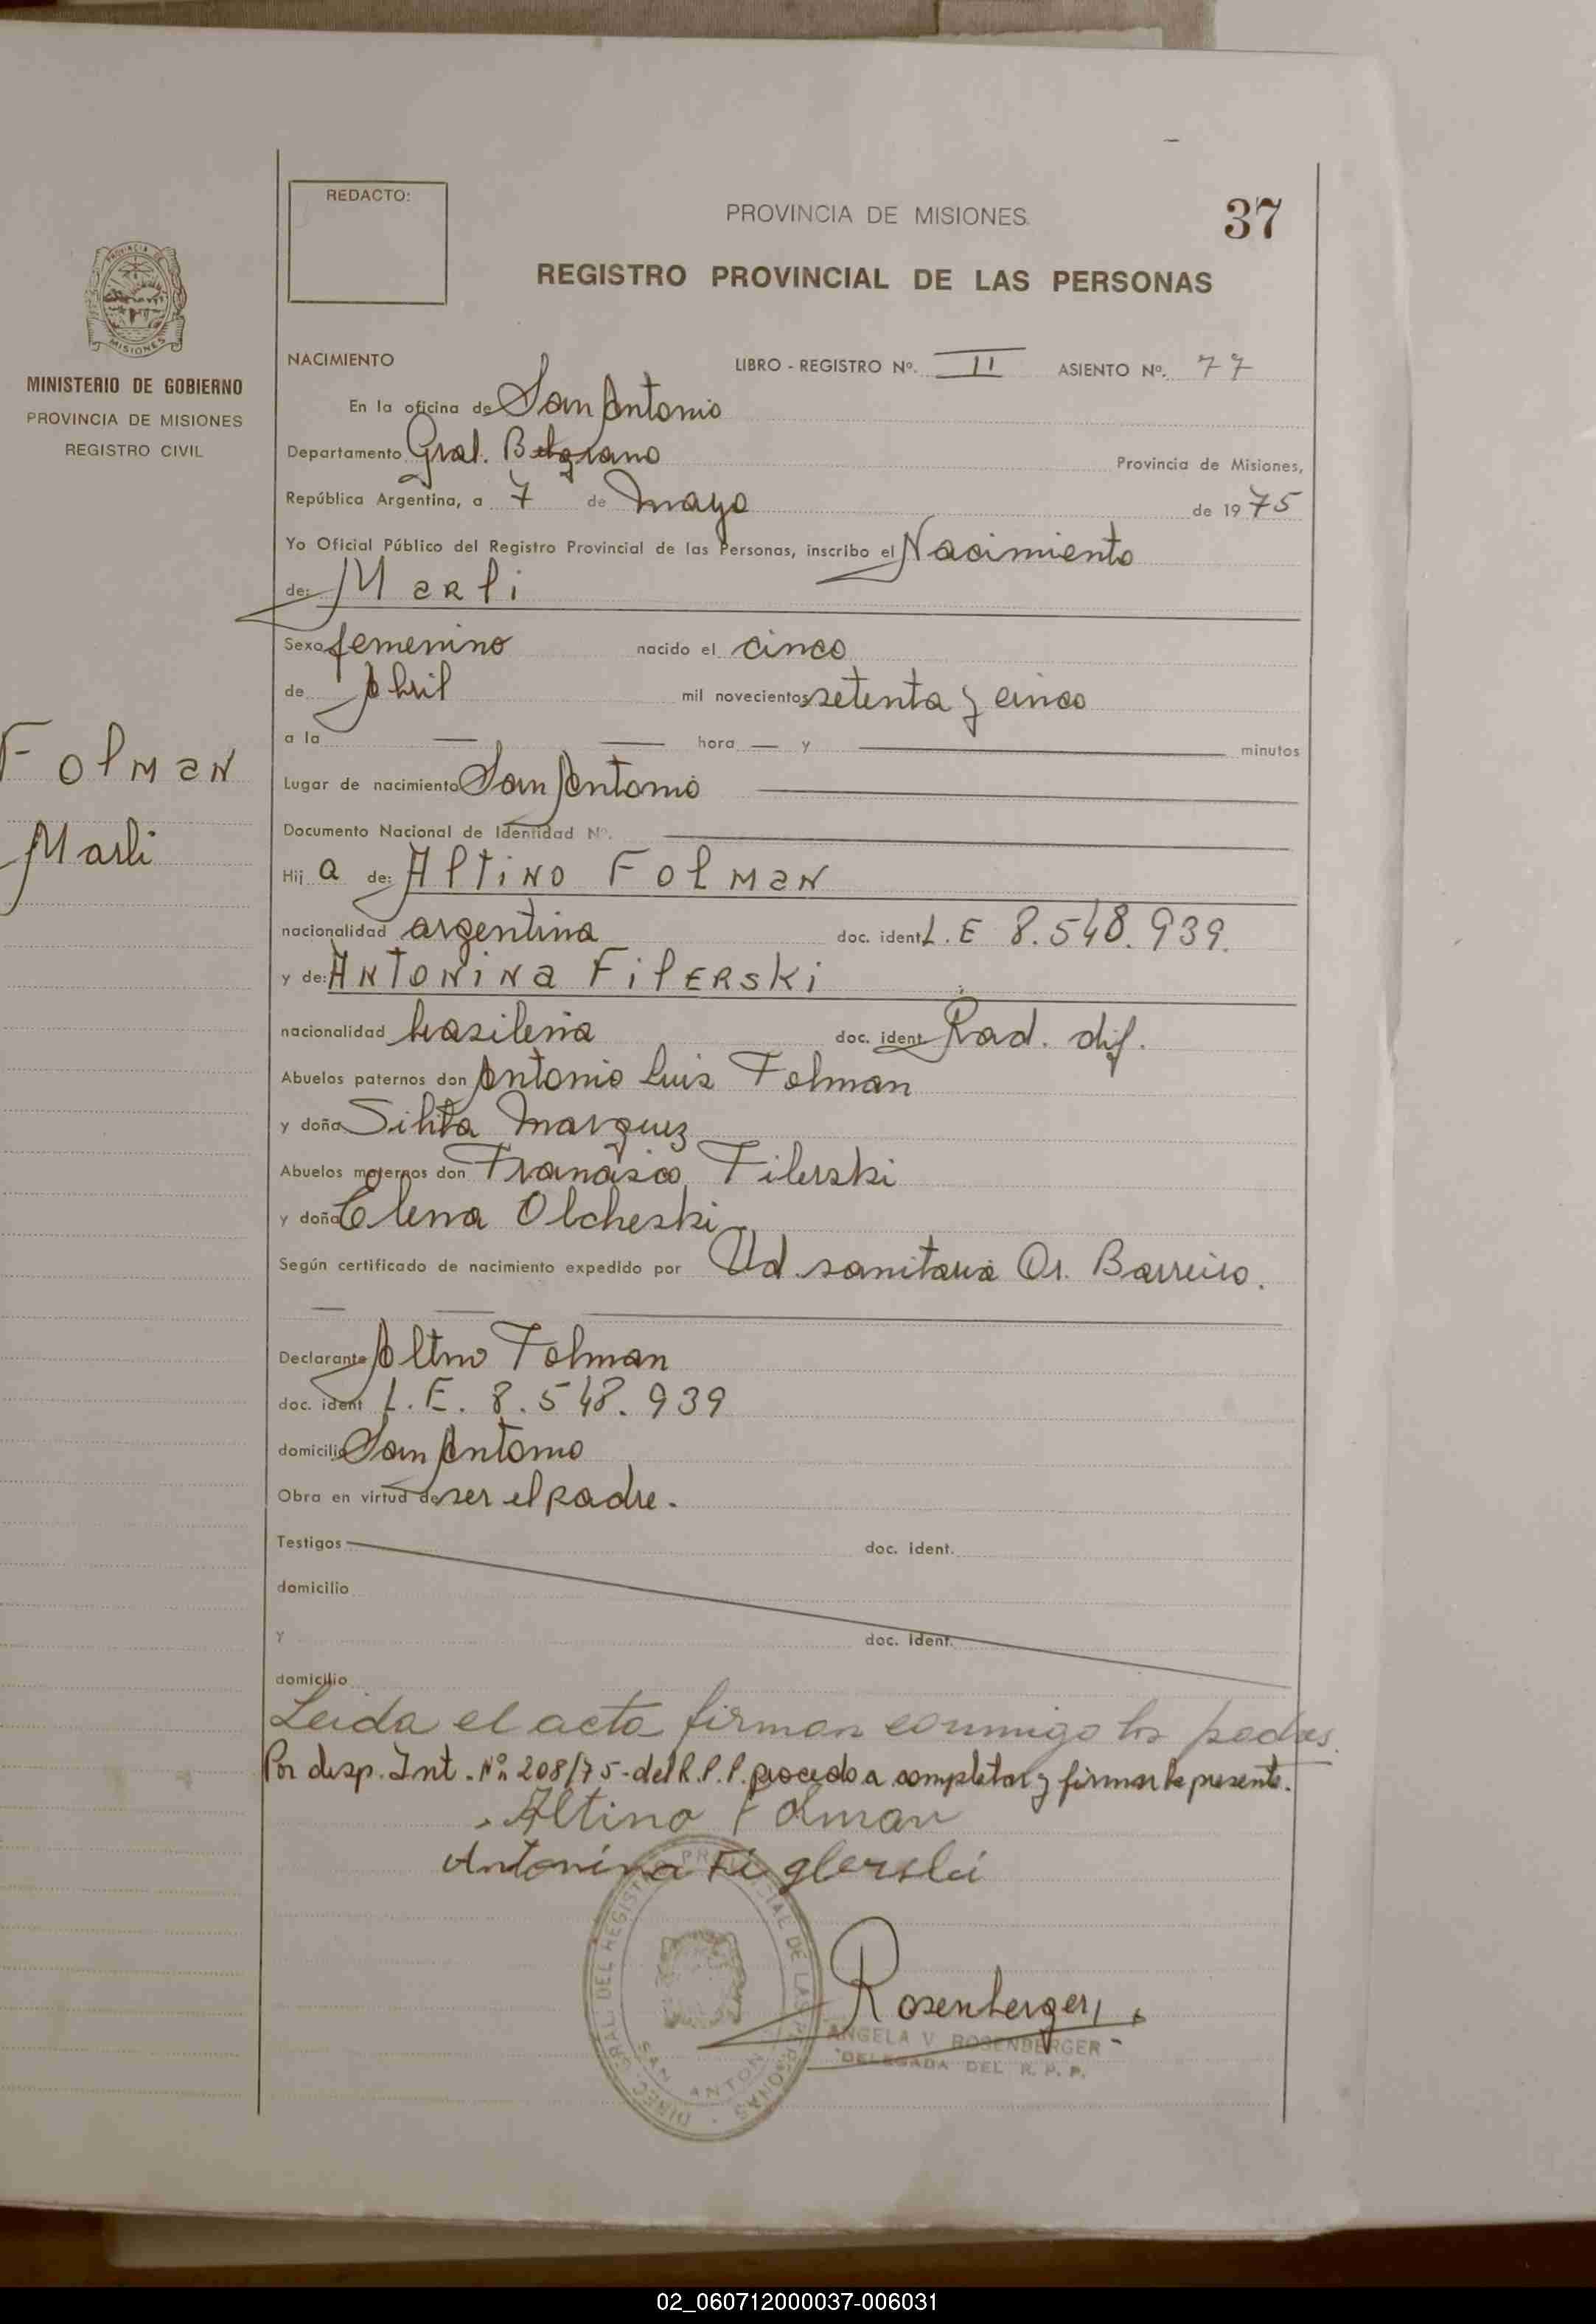 REDACTO:
PROVINCIA DE MISIONES
37
REGISTRO PROVINCIAL DE LAS PERSONAS
PROVINCIA DE
MISIONES
MINISTERIO DE GOBIERNO
PROVINCIA DE MISIONES
REGISTRO CIVIL
Folman
Marli
NACIMIENTO LIBRO - REGISTRO Nº. II ASIENTO Nº. 77
En la oficina de San Antonio
Departamento Gral. Belgrano Provincia de Misiones,
República Argentina, a 7 de Mayo de 1975
Yo Oficial Público del Registro Provincial de las Personas, inscribo el Nacimiento
de: Marli
Sexo femenino nacido el cinco
de Abril mil novecientos setenta y cinco
a la — — hora — y — minutos
Lugar de nacimiento San Antonio
Documento Nacional de Identidad Nº.
Hija de: Altino Folman
nacionalidad argentina doc. ident L.E 8.548.939.
y de: Antonina Filerski
nacionalidad brasileña doc. ident Rad. dif.
Abuelos paternos don Antonio Luis Folman
y doña Marquez
Abuelos maternos don Francisco Filerski
y doña Elena Olcheski
Según certificado de nacimiento expedido por Ud. sanitaria Dr. Barreiro.
Declarante Altino Folman
doc. ident L.E. 8.548.939
domicilio San Antonio
Obra en virtud de ser el padre.
Testigos doc. ident.
domicilio
y doc. ident.
domicilio
Leida el acta firman conmigo los padres.
Por desp. Int. Nº 208/75-del R.P.P. procedo a completar y firmar la presente.
Altino Folman
Antonina Figlerski
DIREC. GRAL. DEL REGISTRO PROVINCIAL DE LAS PERSONAS
SAN ANTONIO
Rosenberger
ANGELA V. ROSENBERGER
DELEGADA DEL R. P. P.
02_060712000037-006031